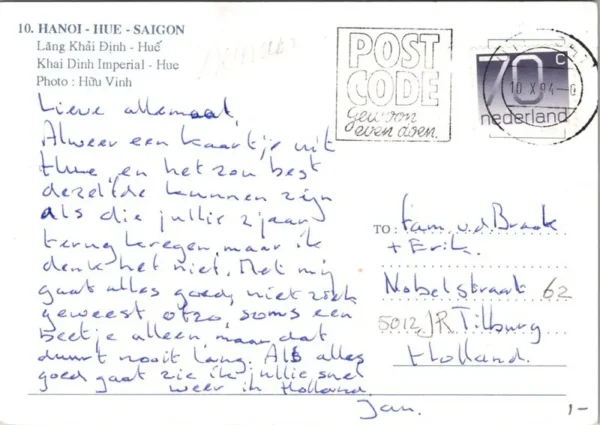 10. HANOI - HUE - SAIGON
Lăng Khải Định - Huế
Khai Dinh Imperial - Hue
Photo : Hữu Vinh
POST
CODE
gewoon
even doen.
70 c
nederland
10.X.94
Lieve allemaal,
Alweer een kaartje uit
Hue, en het zou best
dezelfde kunnen zijn
als die jullie 2 jaar
terug kregen, maar ik
denk het niet. Met mij
gaat alles goed, niet ziek
geweest ofzo, soms een
beetje alleen, maar dat
duurt nooit lang. Als alles
goed gaat zie ik jullie snel
weer in Holland.
Jan.
TO : Fam. v.d. Braak
+ Erik.
Nobelstraat 62
5012 JR Tilburg
Holland.
1-